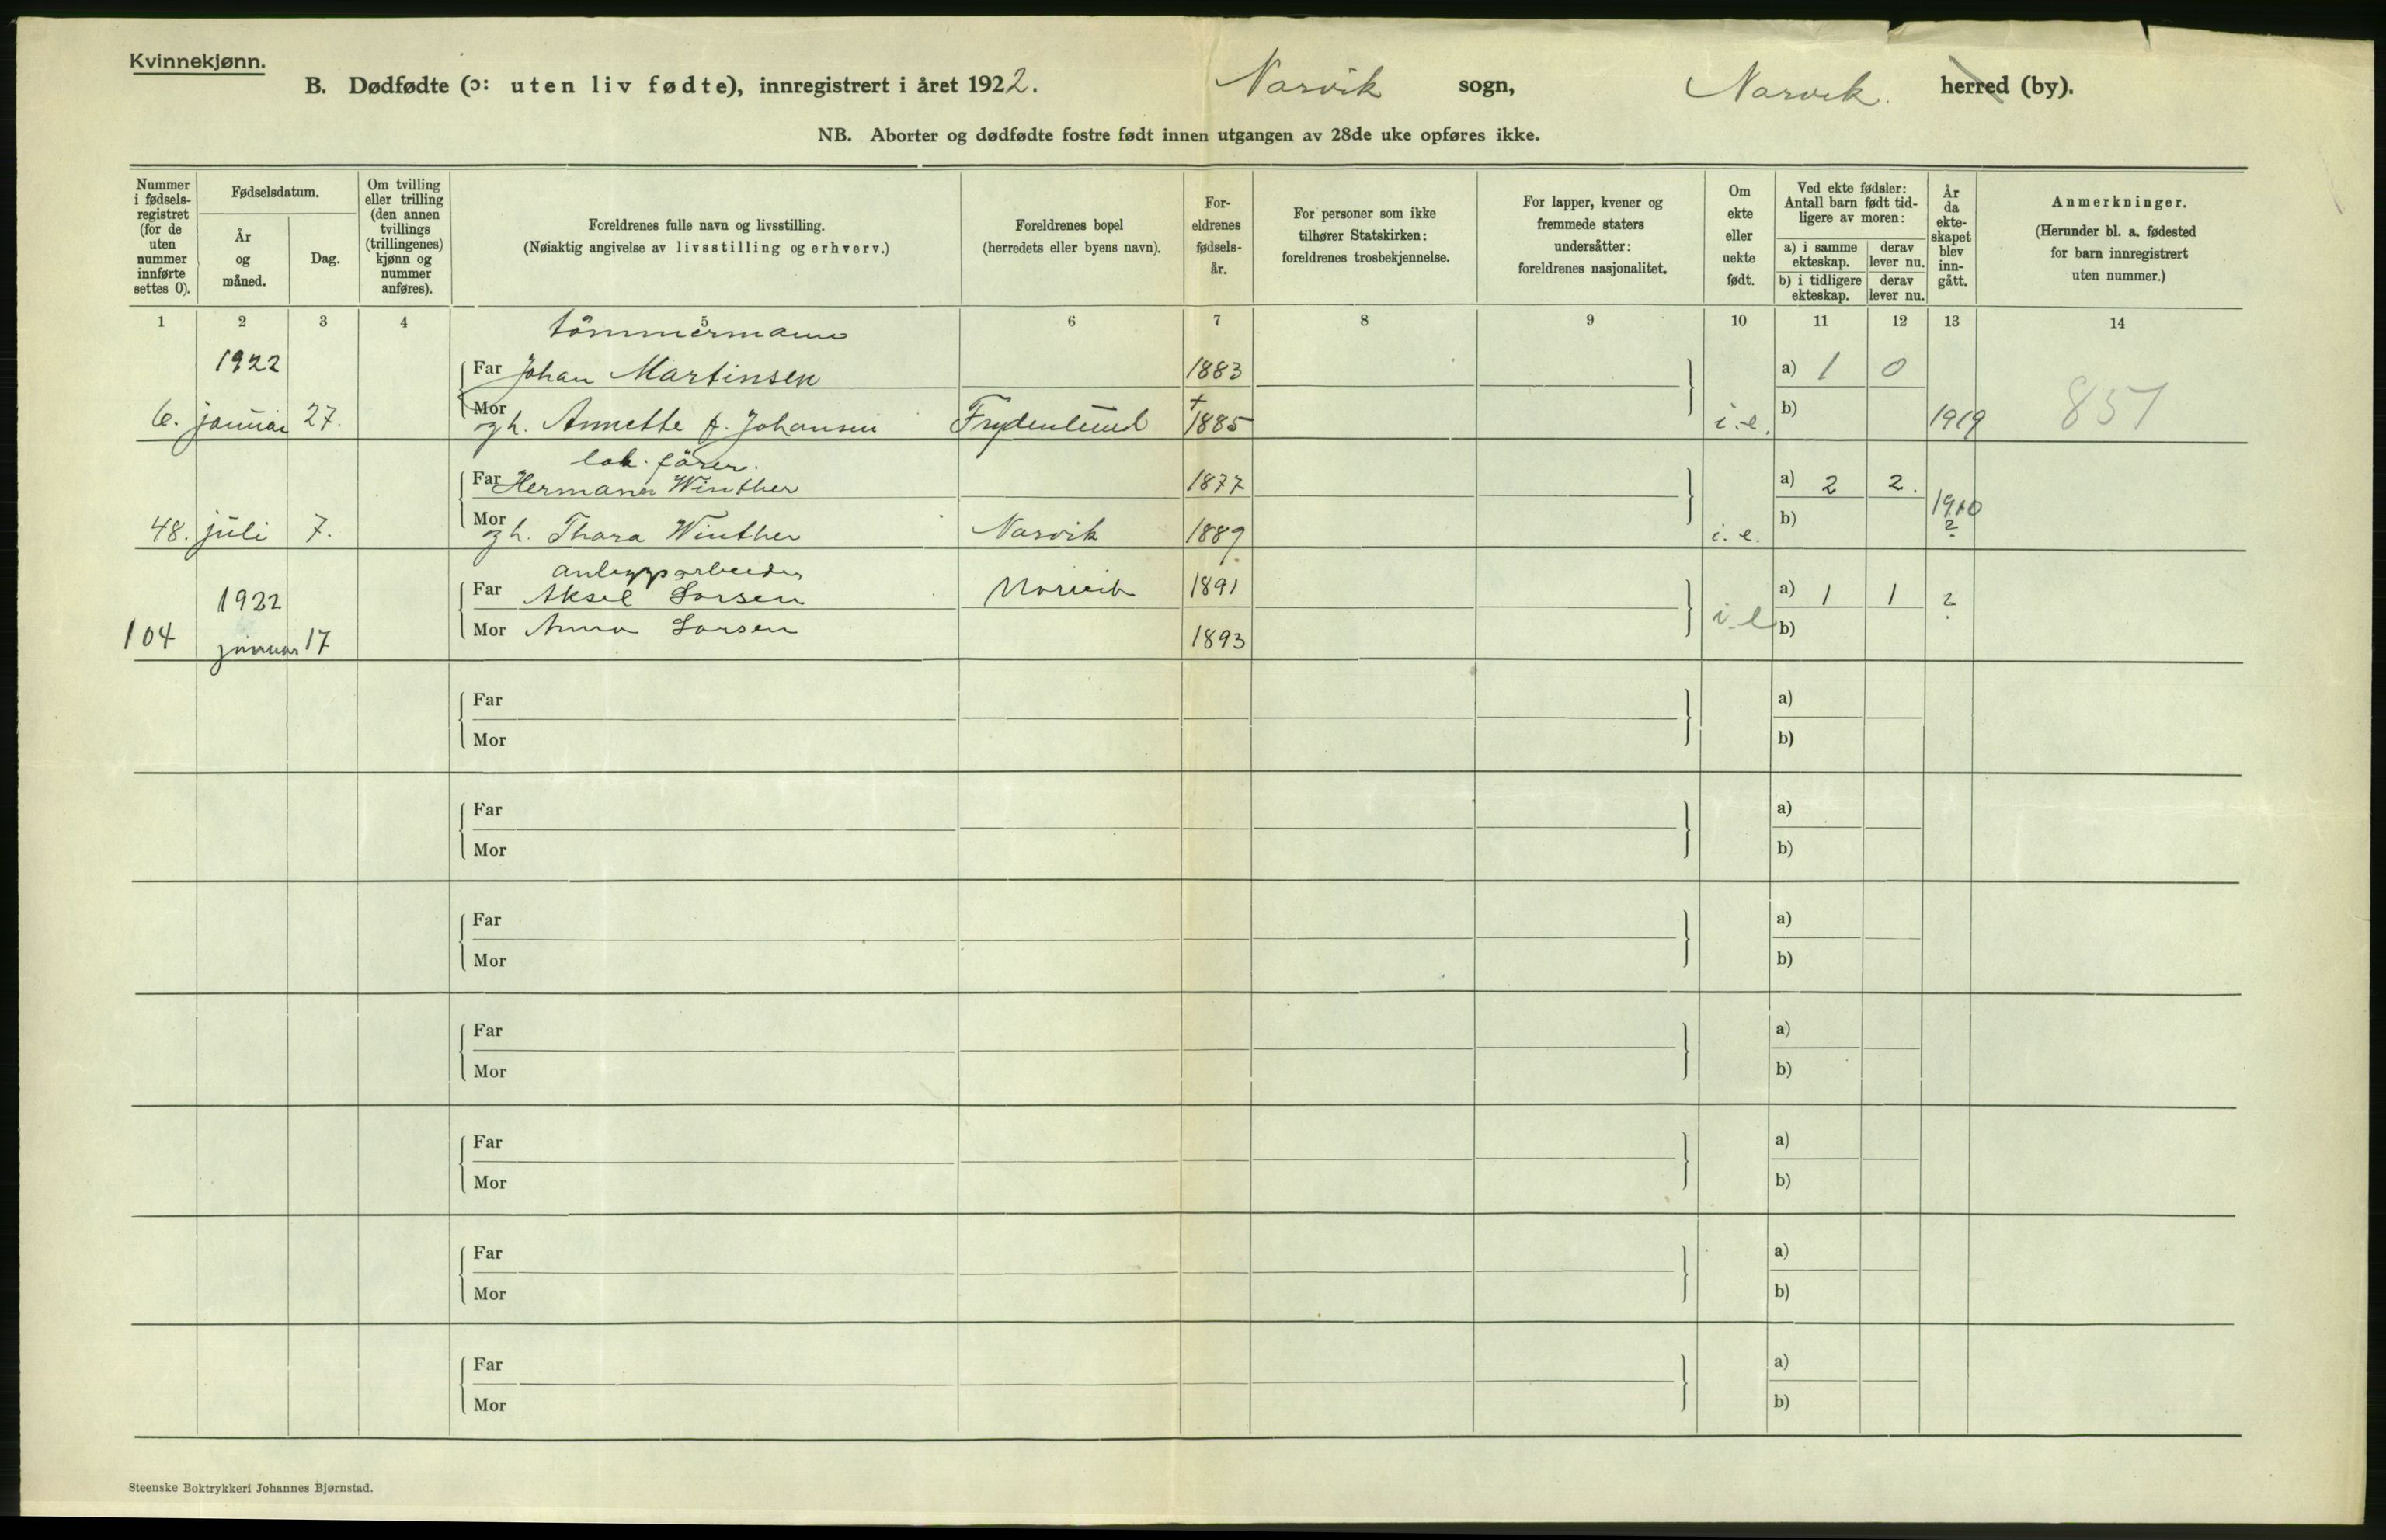 Kvinnekjønn.
B. Dødfødte (ɔ: uten liv fødte), innregistrert i året 1922. Narvik sogn, Narvik. herred (by).
NB. Aborter og dødfødte fostre født innen utgangen av 28de uke opføres ikke.
Nummer i fødsels-registret (for de uten nummer innførte settes 0).
Fødselsdatum.
År og måned.
Dag.
Om tvilling eller trilling (den annen tvillings (trillingenes) kjønn og nummer anføres).
Foreldrenes fulle navn og livsstilling.
(Nøiaktig angivelse av livsstilling og erhverv.)
Foreldrenes bopel
(herredets eller byens navn).
For-eldrenes fødsels-år.
For personer som ikke tilhører Statskirken: foreldrenes trosbekjennelse.
For lapper, kvener og fremmede staters undersåtter: foreldrenes nasjonalitet.
Om ekte eller uekte født.
Ved ekte fødsler: Antall barn født tid-ligere av moren:
a) i samme ekteskap. derav lever nu.
b) i tidligere ekteskap. derav lever nu.
År da ekte-skapet blev inn-gått.
Anmerkninger.
(Herunder bl. a. fødested for barn innregistrert uten nummer.)
1 2 3 4 5 6 7 8 9 10 11 12 13 14
tömmermann
1922 Far Johan Martinsen 1883 a) 1 0
6. januar 27. Mor og h. Annette f. Johansen Frydenlund 1885 i.e. b) 1919 851
lok. förer.
Far Hermann Winther 1877 a) 2 2. 1910
48. juli 7. Mor og h. Thora Winther Narvik 1889 i.e. b) ?
anleggsarbeider
1922 Far Aksel Larsen Narvik 1891 a) 1 1 ?
104 januar 17 Mor Anna Larsen 1893 i.e b)
Far a)
Mor b)
Far a)
Mor b)
Far a)
Mor b)
Far a)
Mor b)
Far a)
Mor b)
Far a)
Mor b)
Far a)
Mor b)
Steenske Boktrykkeri Johannes Bjørnstad.